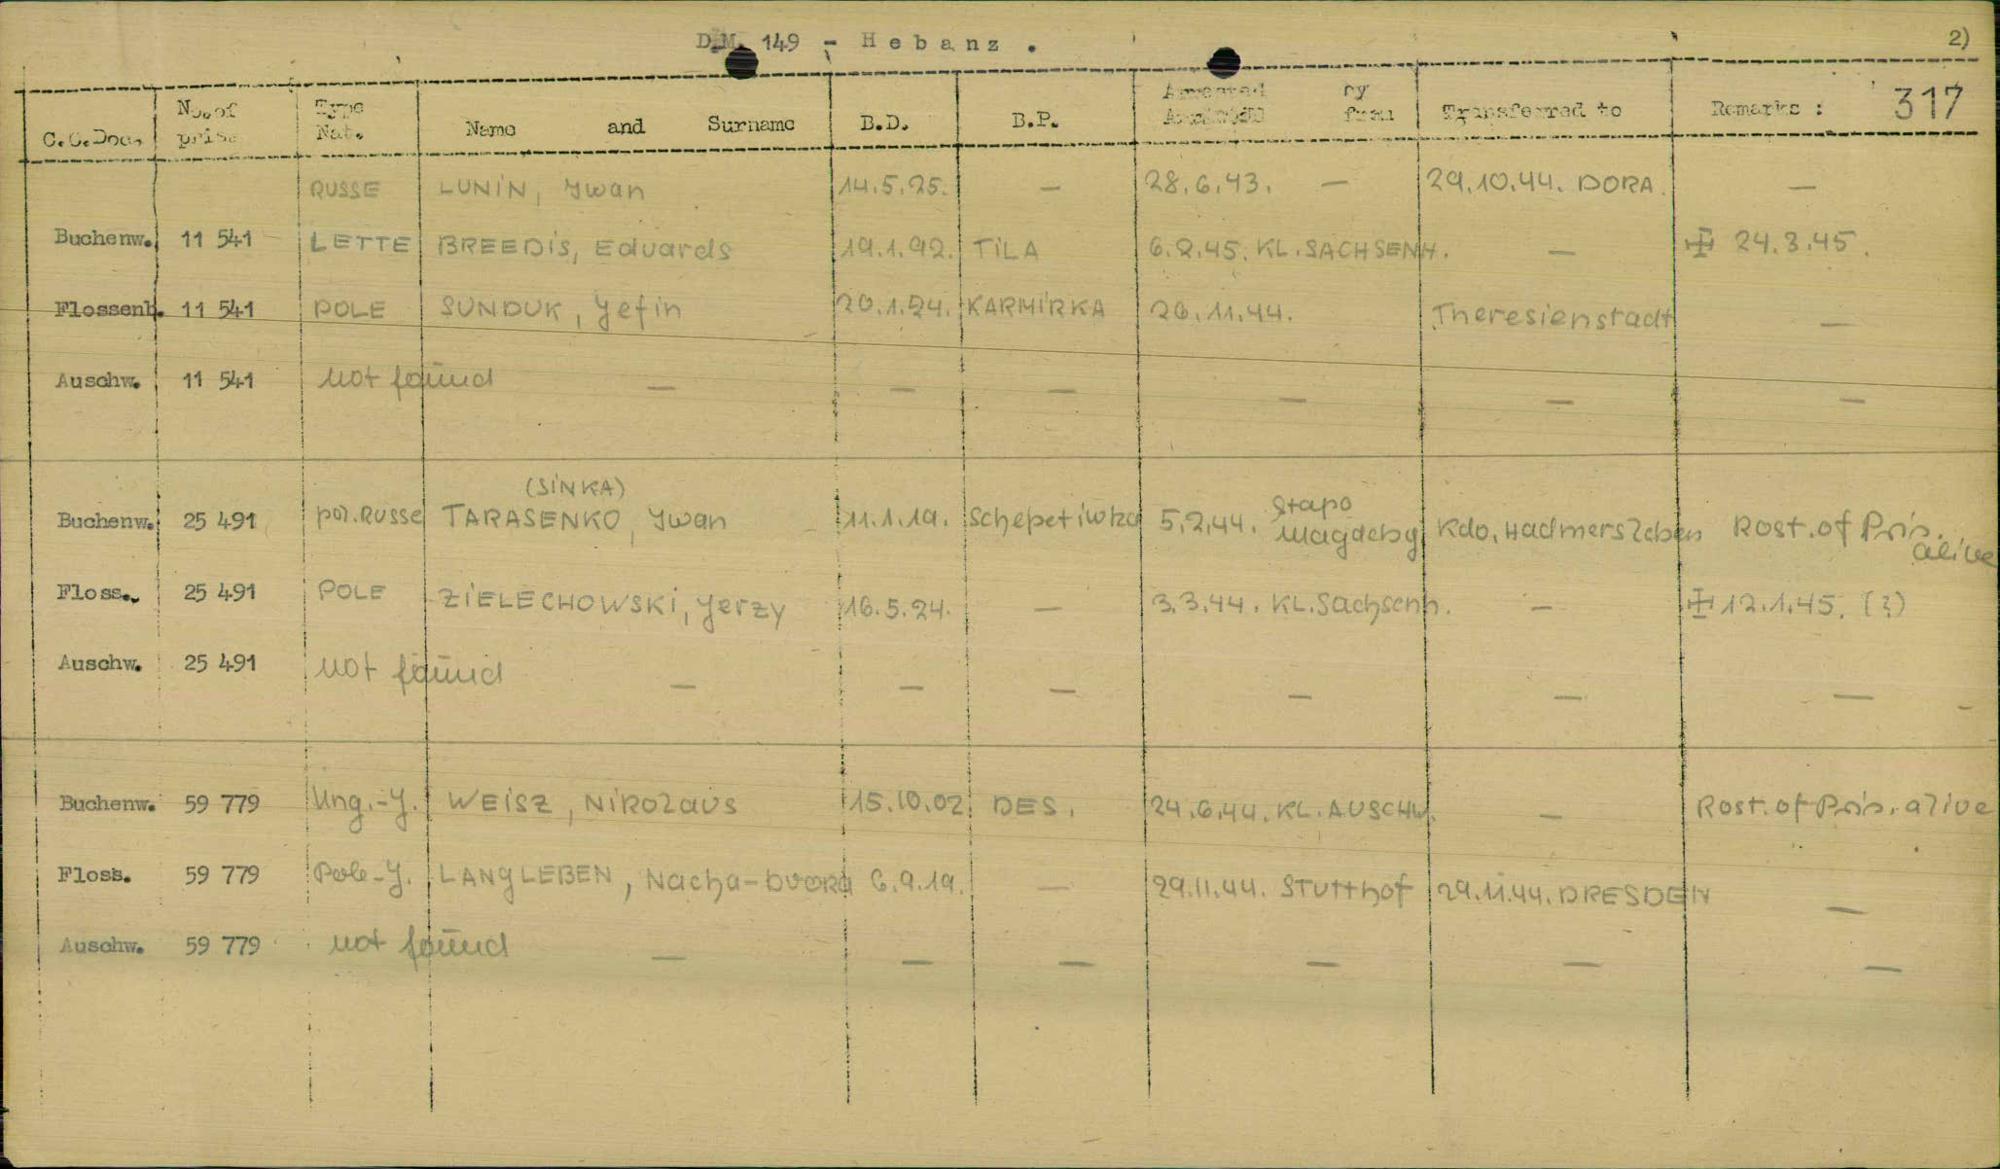 D.M. 149 - Hebanz .
2)
317
C.C.Doc. No.of pris. Type Nat. Name and Surname B.D. B.P. Arrested by from Transferred to Remarks :
RUSSE LUNIN, Ywan 14.5.25. — 28.6.43. — 29.10.44. DORA. —
Buchenw. 11 541 LETTE BREEDIS, Eduards 19.1.92. TILA 6.2.45. KL.SACHSENH. — 24.3.45.
Flossenb. 11 541 POLE SUNDUK, Yefin 20.1.24. KARMIRKA 26.11.44. Theresienstadt —
Auschw. 11 541 not found — — — — — —
(SINKA)
Buchenw. 25 491 pol.RUSSE TARASENKO, Ywan 11.1.19. Schepetiwka 5.2.44. Stapo Magdebg Kdo. Hadmersleben Rost.of Pris. alive
Floss. 25 491 POLE ZIELECHOWSKI, Yerzy 16.5.24. — 3.3.44. KL.Sachsenh. — 12.1.45. (?)
Auschw. 25 491 not found — — — — — —
Buchenw. 59 779 Ung.-Y. WEISZ, Nikolaus 15.10.02. DES. 24.6.44. KL.AUSCHW. — Rost.of Pris. alive
Floss. 59 779 Pole-Y. LANGLEBEN, Nacha-Dvora 6.9.19. — 29.11.44. Stutthof 29.11.44. DRESDEN —
Auschw. 59 779 not found — — — — — —